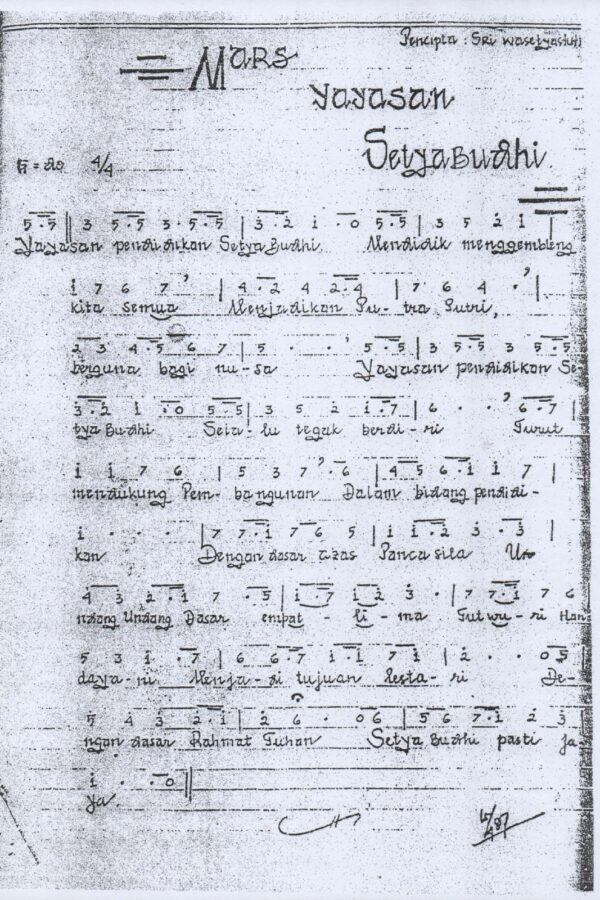 Pencipta : Sri Wasetyastuti
Mars
Yayasan
Setya Budhi
G = do 4/4
5.5 || 3 5.5 3.5.5 | 3.2 1 .0 5.5 | 3 5 2 1 |
Yayasan pendidikan Setya Budhi, Mendidik menggembleng
1 7 6 7 ’ | 4.2 4 2.4 | 7 6 4 .’ |
kita semua Menjadikan Pu-tra Putri,
2 3 4.5 6 7 | 5 . . ’ 5.5 | 3 5.5 3 5.5
berguna bagi nu-sa Yayasan pendidikan Se-
3.2 1 .0 5 5 | 3 5 2 1.7 | 6 . . ’ 6.7 |
tya Budhi Sela-lu tegak berdi-ri Turut
1 1 7 6 | 5 3 7 ’ . 6 | 4 5 6.1 1 7 |
mendukung Pem-bangunan Dalam bidang pendidi-
1 . . . | 7 7.1 7 6 5 | 1 1.2 3 . 3 |
kan Dengan dasar azas Pancasila U
4 3 2.1 7 .5 | 1.7 1.2 3 . | 7 7.1 7 6
ndang Undang Dasar empat-li-ma Tutwu-ri Han
5 3 1 .7 | 6 6.7 1.1 7 1 | 2 . . 0 5
daya-ni Menja-di tujuan lesta-ri De-
5 4 3 2.1 | 2 6 . 0 6 | 5 6 7.1 2 3
ngan dasar Rahmat Tuhan Setya Budhi pasti ja-
1 . . 0 ||
ya.